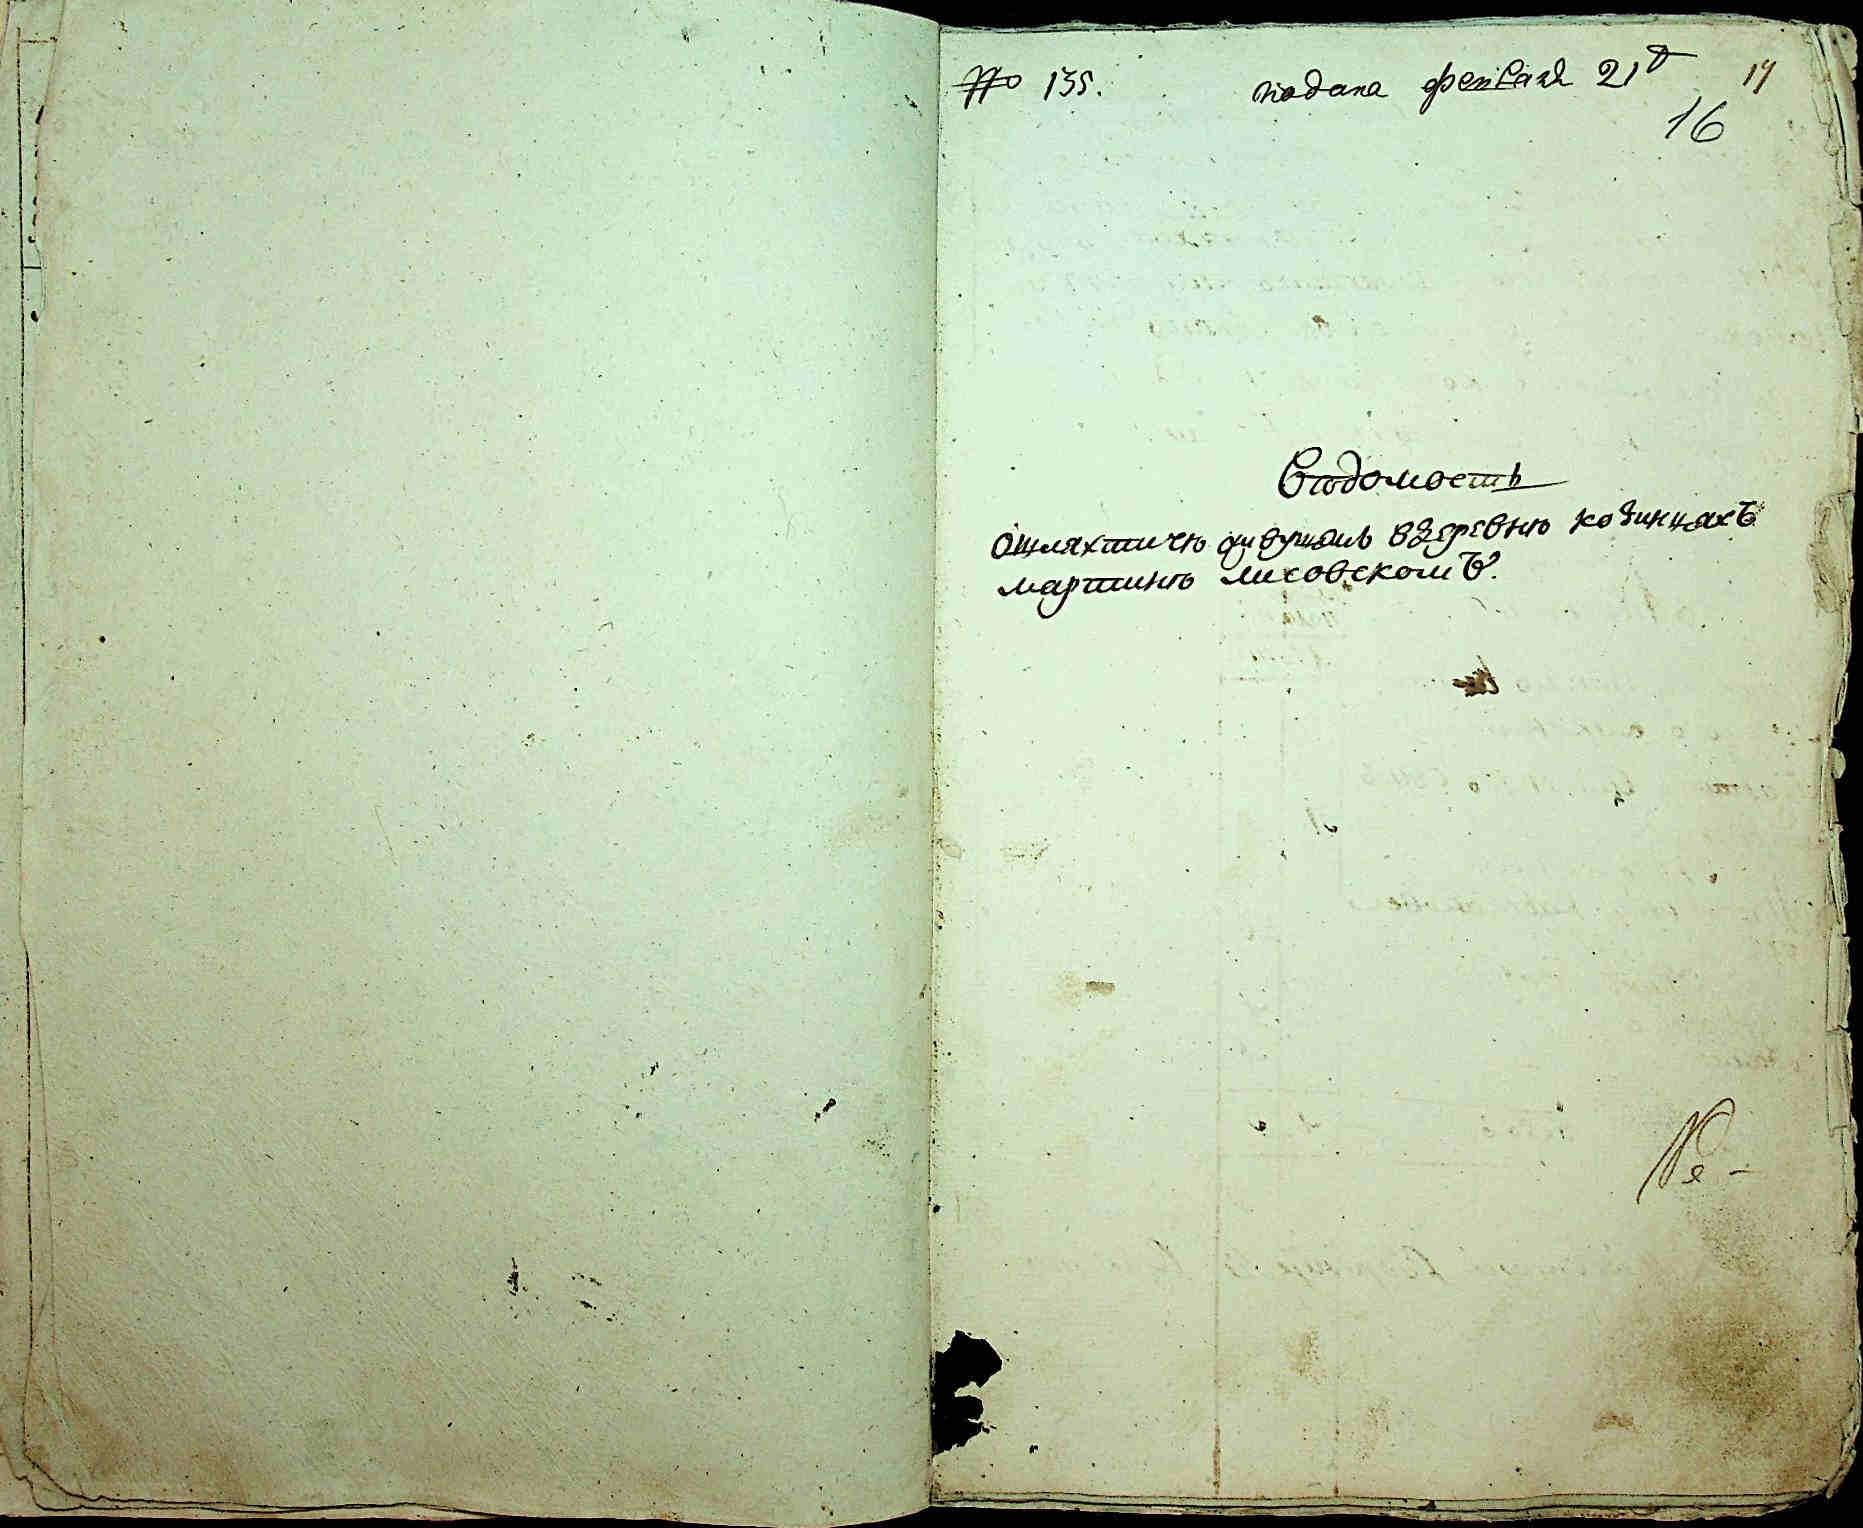 № 135. подана февраля 21º 17
16
Вѣдомость
ошляхтичю живущемъ вдеревню козинцахъ
мартинѣ лисовскомъ.